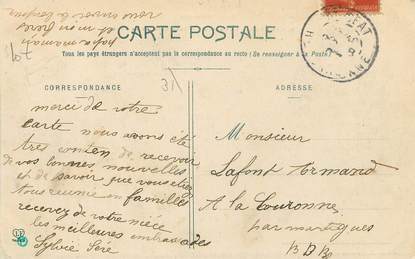 papa maman
et mon frère
vous envoie le bonjour
CARTE POSTALE
Tous les pays étrangers n'acceptent pas la correspondance au recto (Se renseigner à la Poste)
CORRESPONDANCE
merci de votre
carte nous avons été
très conten de recevoir
de vos bonnes nouvelles
et de savoir que vous etiez
tous reunie en familles
recevez de votre nièce
les meilleures embrassades
Sylvie Séré
ADRESSE
Monsieur
Lafont Armand
A la Couronne
par martigues
B D R